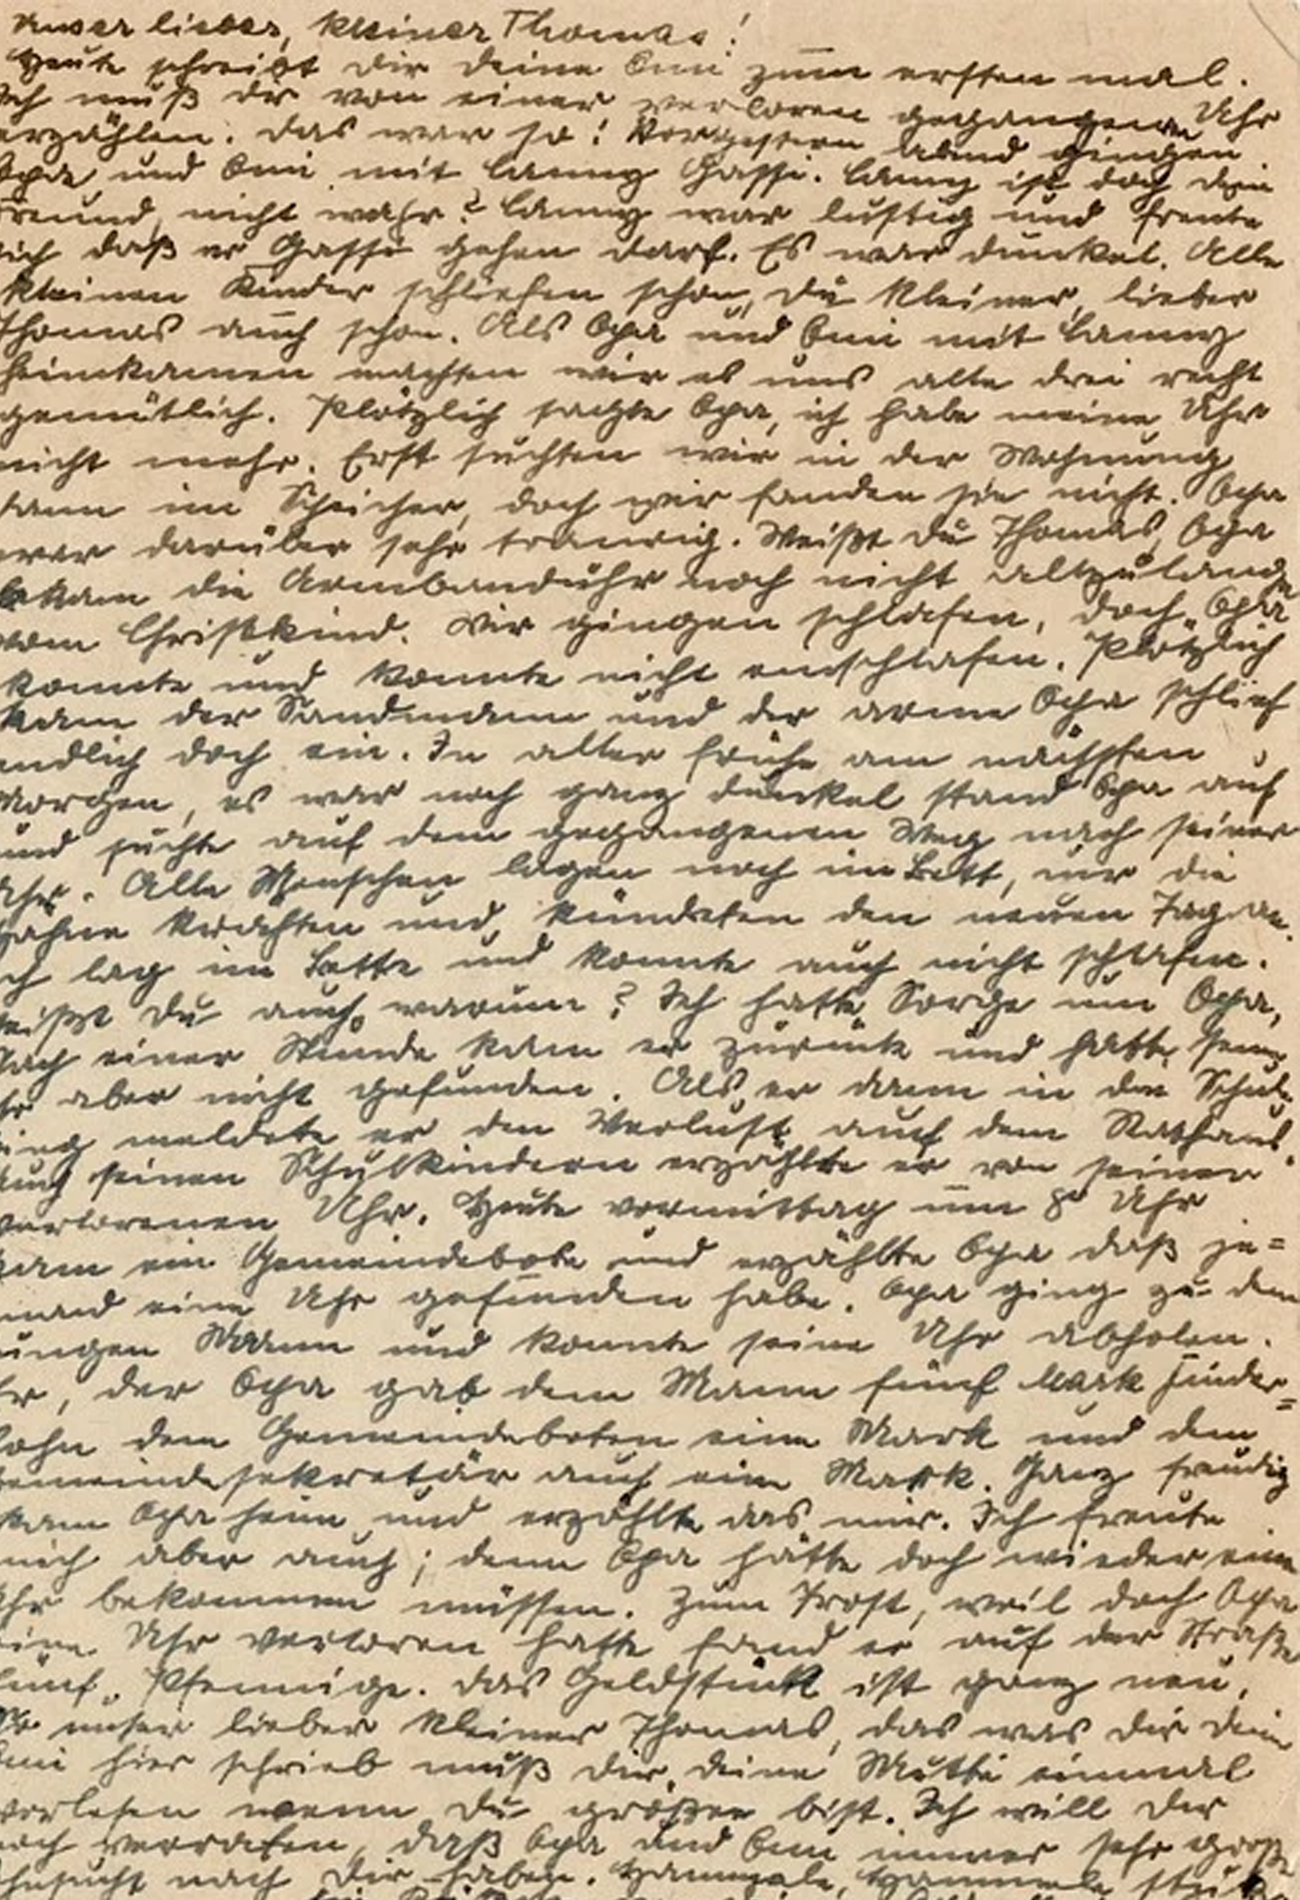 Unser lieber, kleiner Thomas!
Heute schreibt Dir Deine Omi zum ersten mal.
Ich muß Dr von einer verloren gegangenen Uhr
erzählen. Das war so: Vorgestern abend gingen
Opa und Omi mit Lanny Gassi. Lanny ist doch Dein
Freund, nicht wahr? Lanny war lustig und freute
sich daß er Gassi gehen darf. Es war dunkel. Alle
kleinen Kinder schliefen schon, Du kleiner, lieber
Thomas auch schon. Als Opa und Omi mit Lanny
heimkamen machten wir es uns alle drei recht
gemütlich. Plötzlich sagte Opa, ich habe meine Uhr
nicht mehr. Erst suchten wir in der Wohnung
dann im, doch wir fanden sie nicht. Opa
war darüber sehr traurig. Weißt Du Thomas, Opa
bekam die Armbanduhr noch nicht allzulange
vom Christkind. Wir gingen schlafen, doch Opa
konnte und konnte nicht einschlafen. Plötzlich
kam der Sandmann und der arme Opa schlief
endlich doch ein. In aller frühe am nächsten
Morgen, es war noch ganz dunkel stand Opa auf
und suchte auf dem gegangenen Weg nach seiner
Uhr. Alle Menschen lagen noch im Bett, nur die
Hähne krähten und kündeten den neuen Tag an.
Ich lag im Bette und konnte auch nicht schlafen.
Weißt Du auch warum? Ich hatte Sorge um Opa,
Nach einer Stunde kam er zurück und hatte seine
Uhr aber nicht gefunden. Als er dann in die Schule
ging meldete er den Verlust auf dem Rathaus.
Auch seinen Schulkindern erzählte er von seiner
verlorenen Uhr. Heute vormittag um 8º Uhr
kam ein Gemeindebote und erzählte Opa daß je=
mand eine Uhr gefunden habe. Opa ging zu dem
jungen Mann und konnte seine Uhr abholen.
Er, der Opa gab dem Mann fünf Mark Finder=
lohn dem Gemeindeboten eine Mark und dem
Gemeindesekretär auch eine Mark. Ganz freudig
kam Opa heim und erzählte das mir. Ich freute
mich aber auch; denn Opa hätte doch wieder eine
Uhr bekommen müssen. Zum Trost, weil doch Opa
seine Uhr verloren hatte fand er auf der Straße
fünf Pfennige. Das Geldstück ist ganz neu.
So unser lieber kleiner Thomas, das was Dir Deine
Omi hier schrieb muß Dir Deine Mutti einmal
vorlesen wenn Du größer bist. Ich will Dir
noch verraten, daß Opa und Omi immer sehr große
Sehnsucht nach Dir haben.